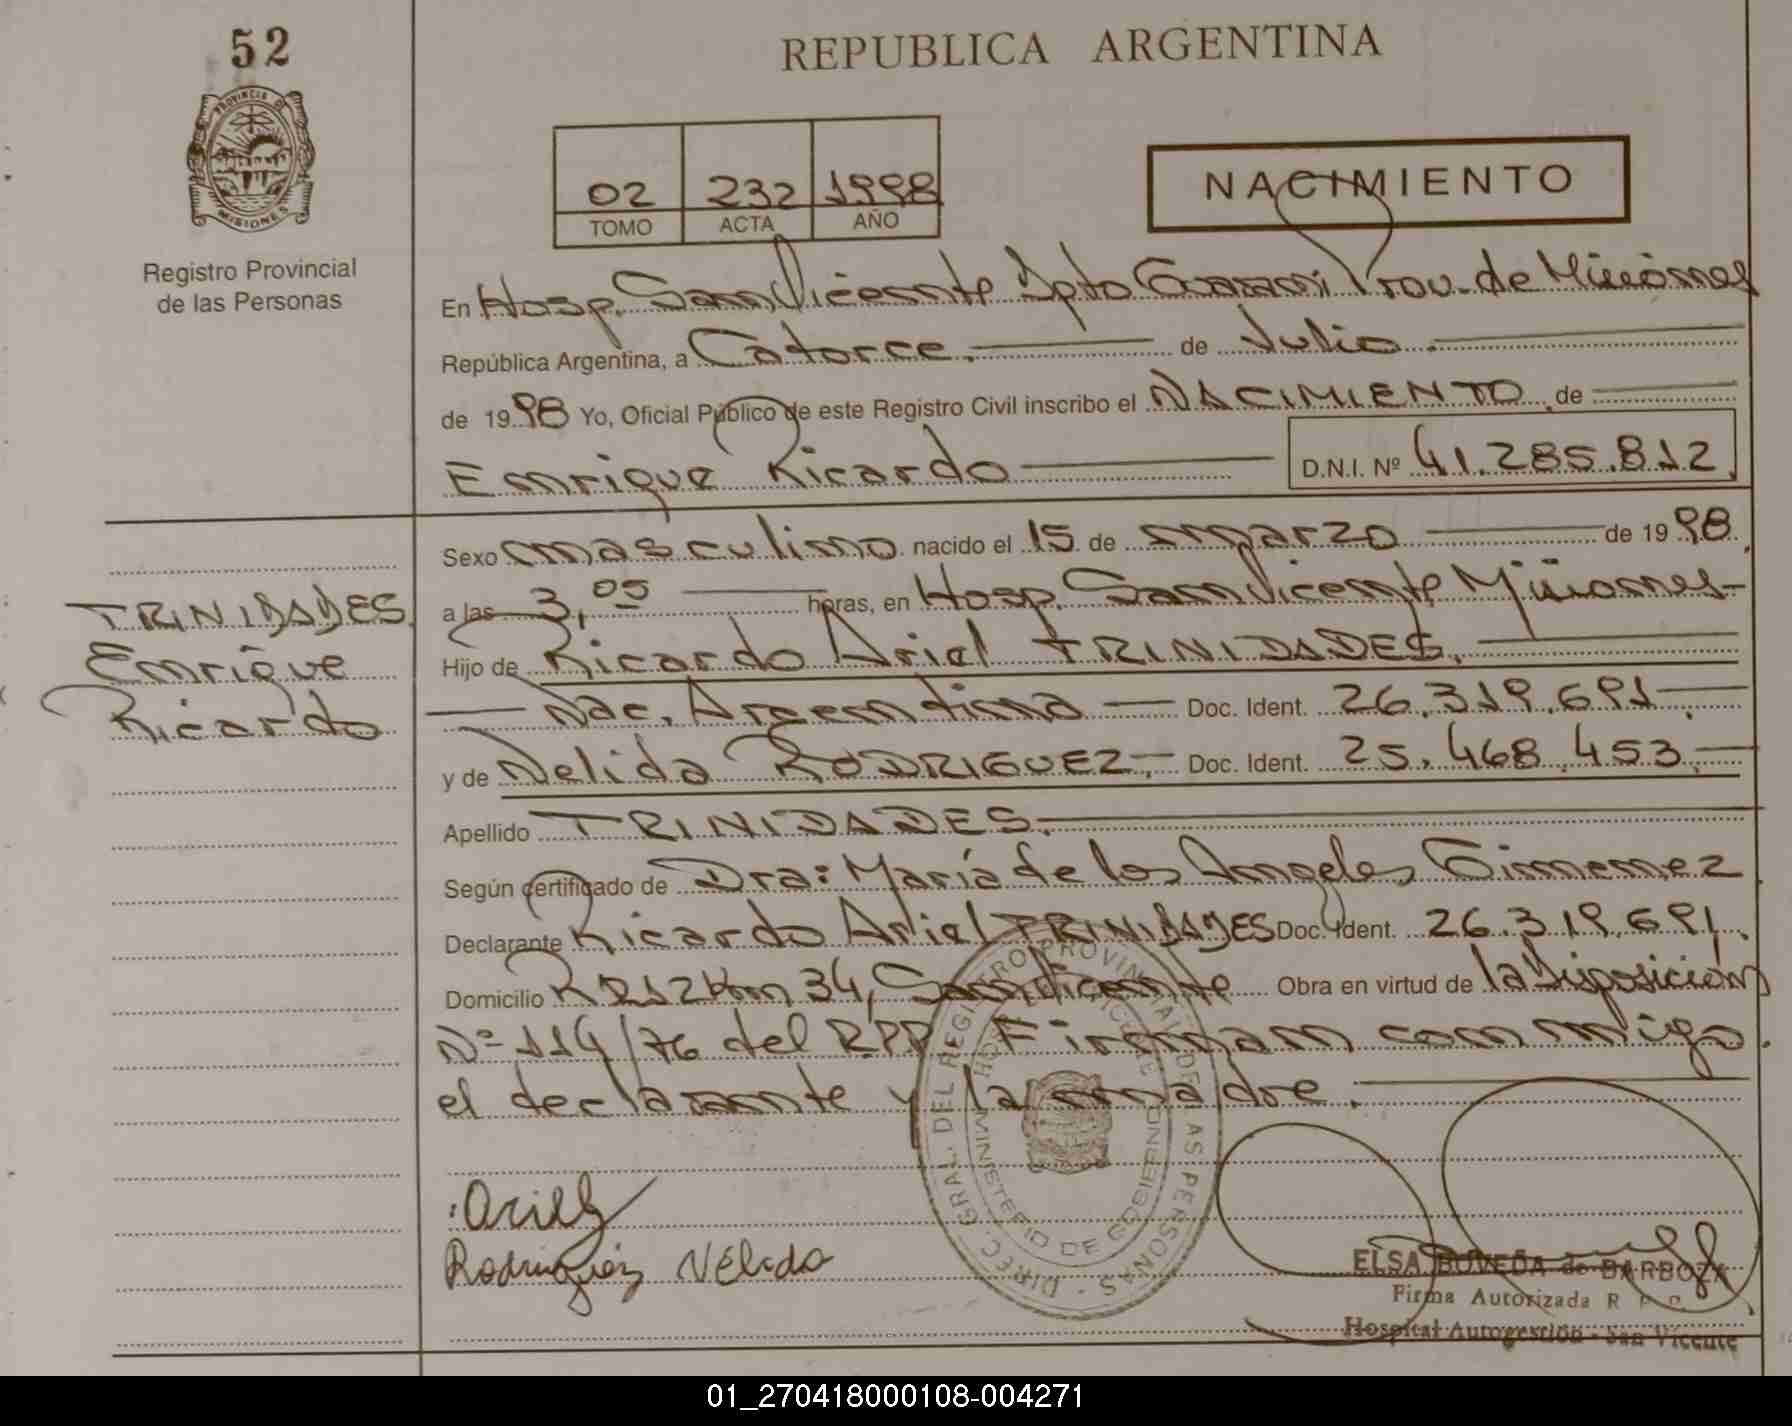 52
REPUBLICA ARGENTINA
PROVINCIA DE
MISIONES
Registro Provincial
de las Personas
02 232 1998
TOMO ACTA AÑO
NACIMIENTO
En Hosp. San Vicente Dpto Guaraní Prov. de Misiones
República Argentina, a Catorce. de Julio.
de 1998 Yo, Oficial Público de este Registro Civil inscribo el NACIMIENTO de
Enrique Ricardo D.N.I. Nº 41.285.812
Sexo masculino nacido el 15 de marzo de 1998.
a las 3,05 horas, en Hosp. San Vicente Misiones
TRINIDADES
Enrique
Ricardo
Hijo de Ricardo Ariel TRINIDADES.
Nac. Argentina Doc. Ident. 26.319.691
y de Nelida RODRIGUEZ Doc. Ident. 25.468.453.
Apellido TRINIDADES.
Según certificado de Dra: María de los Angeles Gimenez
Declarante Ricardo Ariel TRINIDADES Doc. Ident. 26.319.691.
Domicilio RP12 Km 34, San Vicente Obra en virtud de la Disposición
Nº 114/76 del R.P.P. Firman conmigo
el declarante y la madre.
DIREC. GRAL. DEL REGISTRO PROVINCIAL DE LAS PERSONAS
MINISTERIO DE GOBIERNO
Rodriguez Nélida
ELSA BOVEDA de BARBOZA
Firma Autorizada R P P
Hospital Autogestión - San Vicente
01_270418000108-004271